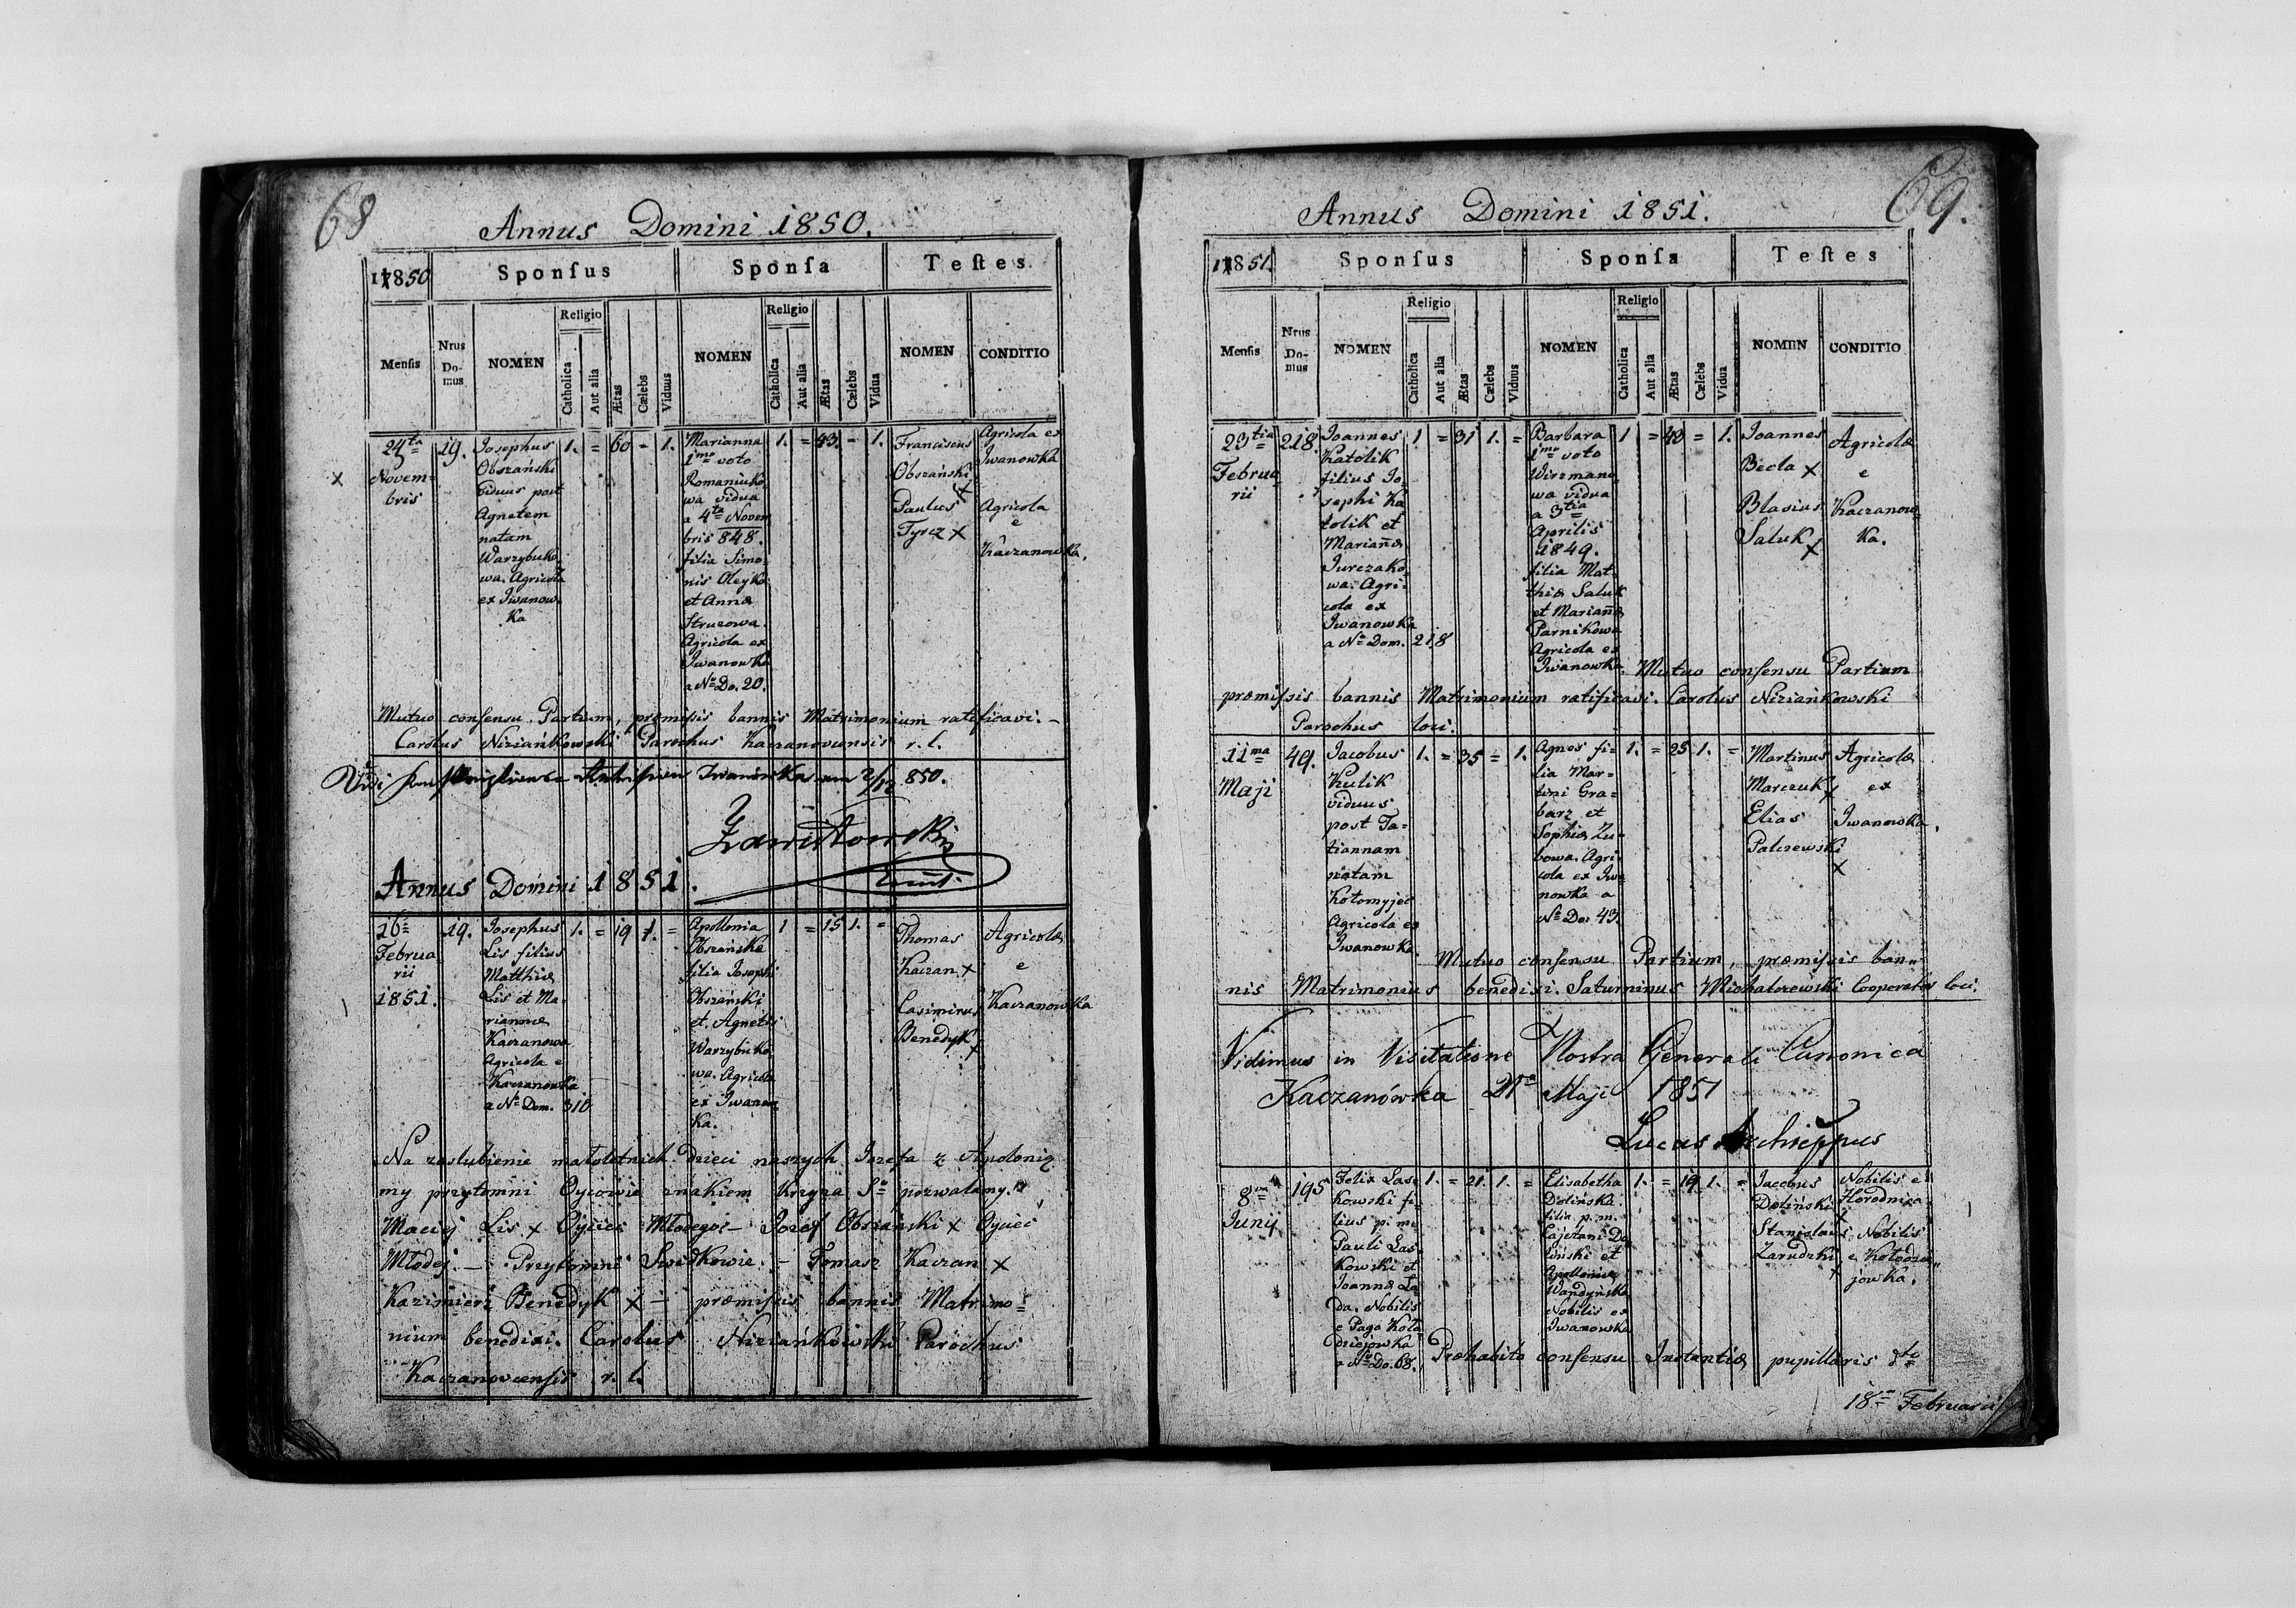 68
Annus Domini 1850.
1850
Sponsus
Sponsa
Testes
Mensis
Nrus Do-mus
NOMEN
Religio
Catholica
Aut alia
Ætas
Cælebs
Viduus
NOMEN
Religio
Catholica
Aut alia
Ætas
Cælebs
Vidua
NOMEN
CONDITIO
24ta
Novem=
bris
19.
Josephus
Obszański
viduus post
Agnetem
natam
Warzybuko
wa. Agricola
ex Iwanow
ka
1. = 60 = 1.
Marianna
1mo voto
Romaniuko
wa vidua
a 4ta Novem
bris 848.
filia Simo
nis Oleyko
et Annæ
Struzowa.
Agricola ex
Iwanowka
a No Do. 20.
1. = 43. = 1.
Franciscus
Obszański
x
Paulus
Tyrcz x
Agricola ex
Iwanowka
Agricola
e
Kaczanowka.
Mutuo consensu Partium, præmissis bannis Matrimonium ratificavi. -
Carolus Niziańkowski Parochus Kaczanovensis r. l.
850.
Annus Domini 1851.
16a
Februa
rii
1851.
19.
Josephus
Lis filius
Matthiæ
Lis et Ma=
riannæ
Kaczanowa
Agricola e
Kaczanowka
a No Dom. 310
1. = 19 1. =
Apollonia
Obszańska
filia Josephi
Obszański
et Agnetis
Warzybuko
wa. Agricola
ex Iwanow
ka.
1 = 15 1. =
Thomas
Kaczan x
Casimirus
Benedyk x
Agricolæ
e
Kaczanowka
Na zaslubienie małoletnich dzieci naszych Jozefa z Apolonią
my przytomni Oycowie znakiem krzyża So pozwalamy.
Maciej Lis x Oyciec Młodego - Jozef Obszański x Oyciec
Młodej. - Przytomni Swiadkowie: - Tomasz Kaczan x
Kazimierz Benedyk x - præmissis bannis Matrimo=
nium benedixi. Carolus Niziańkowski Parochus
Kaczanovensis r. l.
69.
Annus Domini 1851.
1851.
Sponsus
Sponsa
Testes
Mensis
Nrus Do-mus
NOMEN
Religio
Catholica
Aut alia
Ætas
Cælebs
Viduus
NOMEN
Religio
Catholica
Aut alia
Ætas
Cælebs
Vidua
NOMEN
CONDITIO
23tia
Februa
rii
218.
Joannes
Katolik
filius Jo=
sephi Ka
tolik et
Mariañæ
Jurczako
wa. Agri=
cola ex
Iwanowka
a No Dom. 218
1 = 31 1. =
Barbara
1mo voto
wa vidua
a 3tia
Aprilis
1849.
filia Mat
thiæ Saluk
et Mariañæ
Parnikowa
Agricola ex
Iwanowka.
1 = 40 = 1.
Joannes
Becla x
Blasius
Saluk x
Agricolæ
e
Kaczanow=
ka.
Mutuo consensu Partium
præmissis bannis Matrimonium ratificavi. Carolus Niziańkowski
Parochus loci.
11ma
Maji
49.
Jacobus
Kulik
viduus
post Ta=
tiannam
natam
Kołomyjec
Agricola ex
Iwanowka
1. = 35 = 1.
Agnes fi=
lia Mar=
tini Gra=
barz et
Sophiæ Zu=
bowa. Agri=
cola ex Iwa
nowka a
No Do. 43
1. = 25 1. =
Martinus
Marczuk x
Elias
Palczewski
x
Agricolæ
ex
Iwanowka.
Mutuo consensu Partium, præmissis ban=
nis Matrimonius benedixi. Saturninus Michalczewski Cooperator loci.
Vidimus in Visitatione Nostra Generali Canonica
Kaczanówka 21a Maji 1851
Lucas Archieppus
8va
Junij
195
Felix Las=
kowski fi=
lius p. m.
Pauli Las=
kowski et
Joannæ La=
da. Nobilis
e Pago Koło
dziejowka
a No Do. 68.
1. = 21. 1. =
Elisabetha
Dolińska
filia p. m.
Cajetani Do
liński et
Apolloniæ
Wandyńska
Nobilis ex
Iwanowka
1. = 19 1. =
Jacobus
Doliński
x
Stanislaus
Zarudzki
x
Nobilis e
Horodnica
Nobilis
e Kołodzie=
jowka.
Præhabito consensu Instantiæ pupillaris dto
18a Februarii